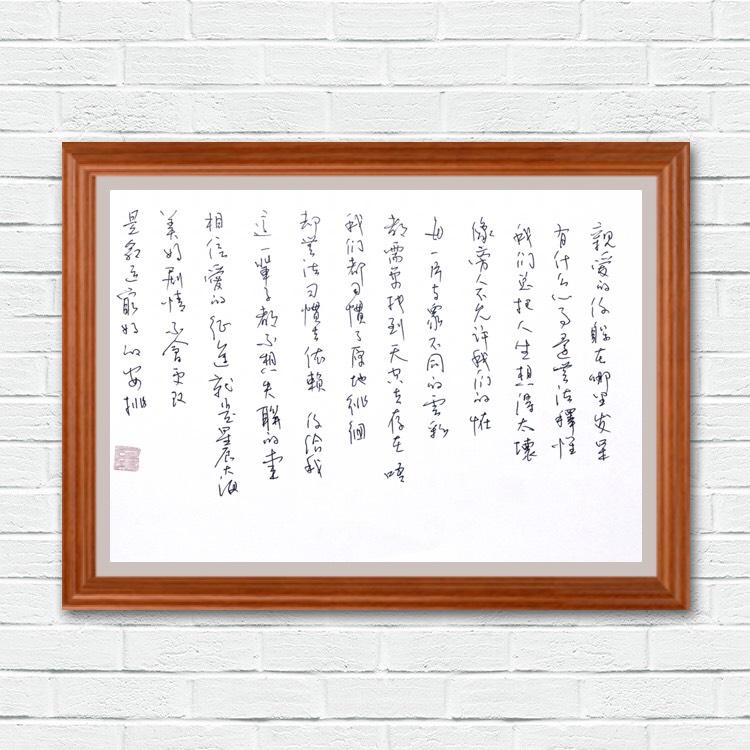 親愛的你躲在哪里发呆
有什么心事還無法釋怀
我们总把人生想得太壞
像旁人不允许我们的怪
每一片与眾不同的雲彩
都需要找到天空去存在 唔
我们都习慣了原地徘徊
却無法习慣去依賴 你给我
這一輩子都不想失聯的爱
相信愛的征途就是星辰大海
美好剧情不會更改
是命運最好的安排